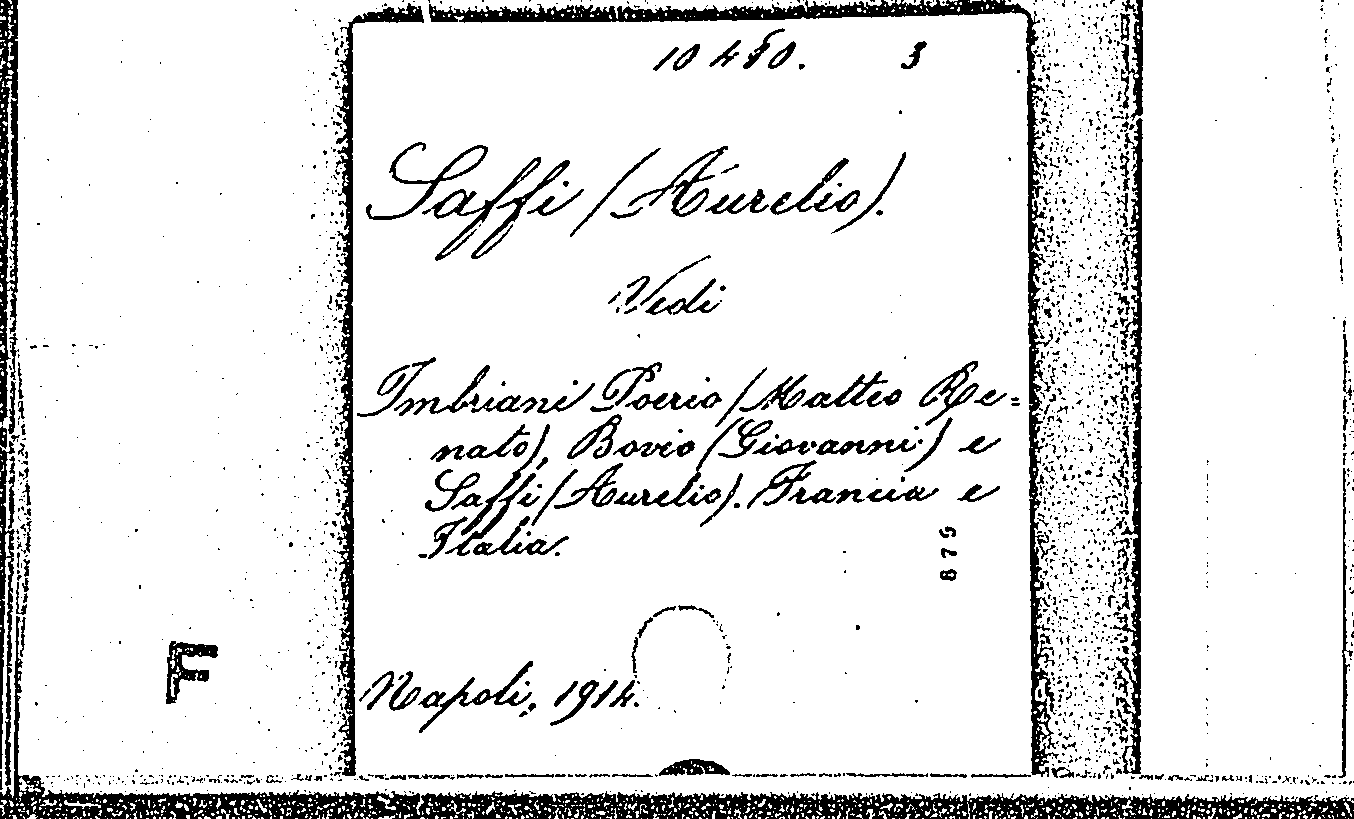 10450. 3
Saffi (Aurelio).
Vedi
Imbriani Poerio (Matteo Re=
nato), Bovio (Giovanni) e
Saffi (Aurelio). Francia e
Italia.
879
F
Napoli, 1914.